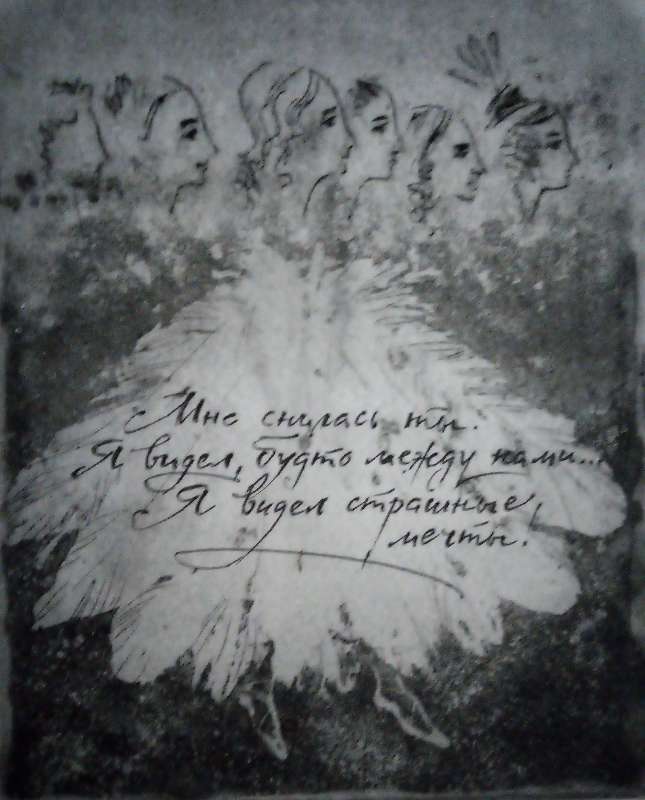 Мне снилась ты.
Я видел, будто между нами...
Я видел страшные
мечты!